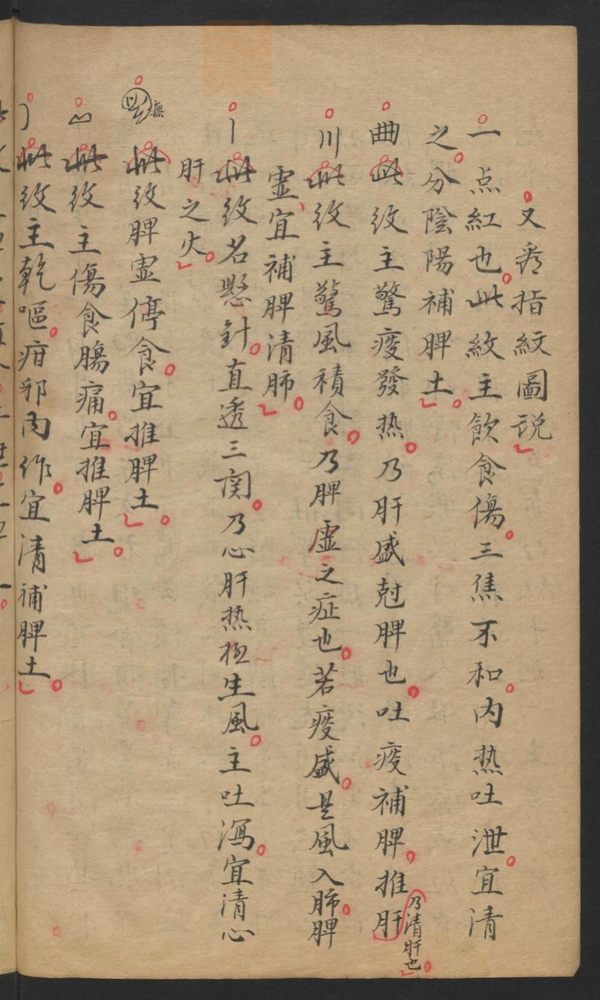 又看指紋圖説
一点紅也。此紋主飲食傷。三焦不和。内热吐泄。宜清
之。分陰陽補脾土。
曲此纹主驚疫發热。乃肝盛尅脾也。吐疫補脾。推肝乃清肝也。
川此纹主驚風積食。乃脾虚之症也。若疫盛。是風入肺。脾
虚。宜補脾清肺。
丨此纹名懸針。直透三関。乃心肝热極生風。主吐瀉。宜清心
肝之火。
此纹脾虚停食。宜推脾土。
此纹主傷食腸痛。宜推脾土。
此纹主乾嘔。疳邪内作。宜清補脾土。